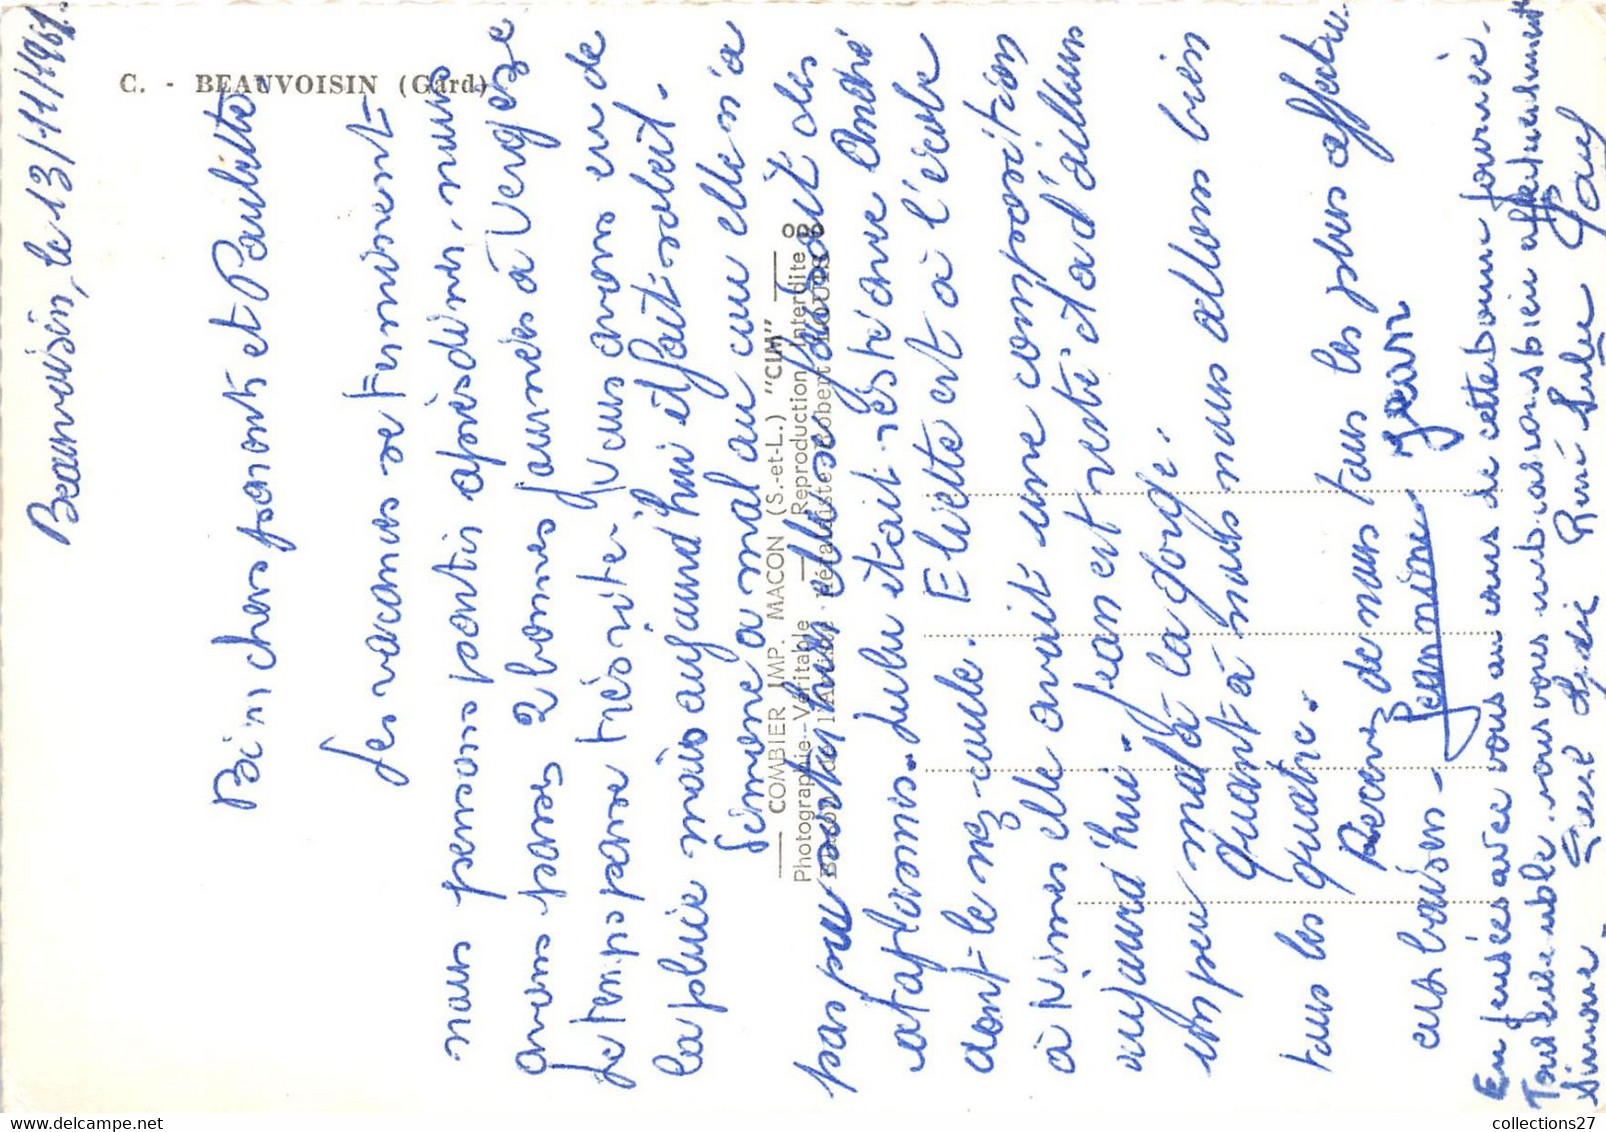 C. - BEAUVOISIN (Gard)
Beauvoisin, le 13/11/1961.
Bien chers parents et Paulette
Les vacances se terminent
nous pensons partir après diner, nous
avons passé 2 bonnes journées à Vergèze
le temps passe très vite. Nous avons eu de
la pluie mais aujourd'hui il fait soleil.
Simone a mal au cou elle n'a
pas pu sortir hier elle se faisait des
cataplasmes. Lulu était resté avec André
dont le nez coule. Eliette est à l'école
à Nimes elle avait une composition
aujourd'hui. Jean est resté il a d'ailleurs
un peu mal à la gorge.
Quant à nous nous allons bien
tous les quatre.
Recevez de nous tous les plus affectu-
eux baisers - Jeannine Jean
En pensées avec vous au cours de cette bonne journée.
Tout ensemble. nous vous embrassons bien affectueusement
Simone René Lulu Paul
COMBIER IMP. MACON (S.-et-L.) "CIM"
Photographie Véritable — Reproduction Interdite